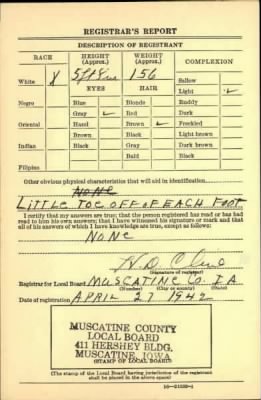 REGISTRAR'S REPORT
DESCRIPTION OF REGISTRANT
RACE HEIGHT (Approx.) WEIGHT (Approx.) COMPLEXION
White X 5ft 156 Sallow
EYES HAIR Light ✓
Negro Blue Blonde Ruddy
Gray ✓ Red ✓ Dark
Oriental Hazel Brown Freckled
Brown Black Light brown
Indian Black Gray Dark brown
Bald Black
Filipino
Other obvious physical characteristics that will aid in identification
None
LITTLE TOE OFF OF EACH FOOT
I certify that my answers are true; that the person registered has read or has had
read to him his own answers; that I have witnessed his signature or mark and that
all of his answers of which I have knowledge are true, except as follows:
None
(Signature of registrar)
Registrar for Local Board MUSCATINE CO. IA
(Number) (City or county) (State)
Date of registration APRIL 27 1942
MUSCATINE COUNTY
LOCAL BOARD
411 HERSHEY BLDG.
MUSCATINE, IOWA
(STAMP OF LOCAL BOARD)
(The stamp of the Local Board having jurisdiction of the registrant
shall be placed in the above space)